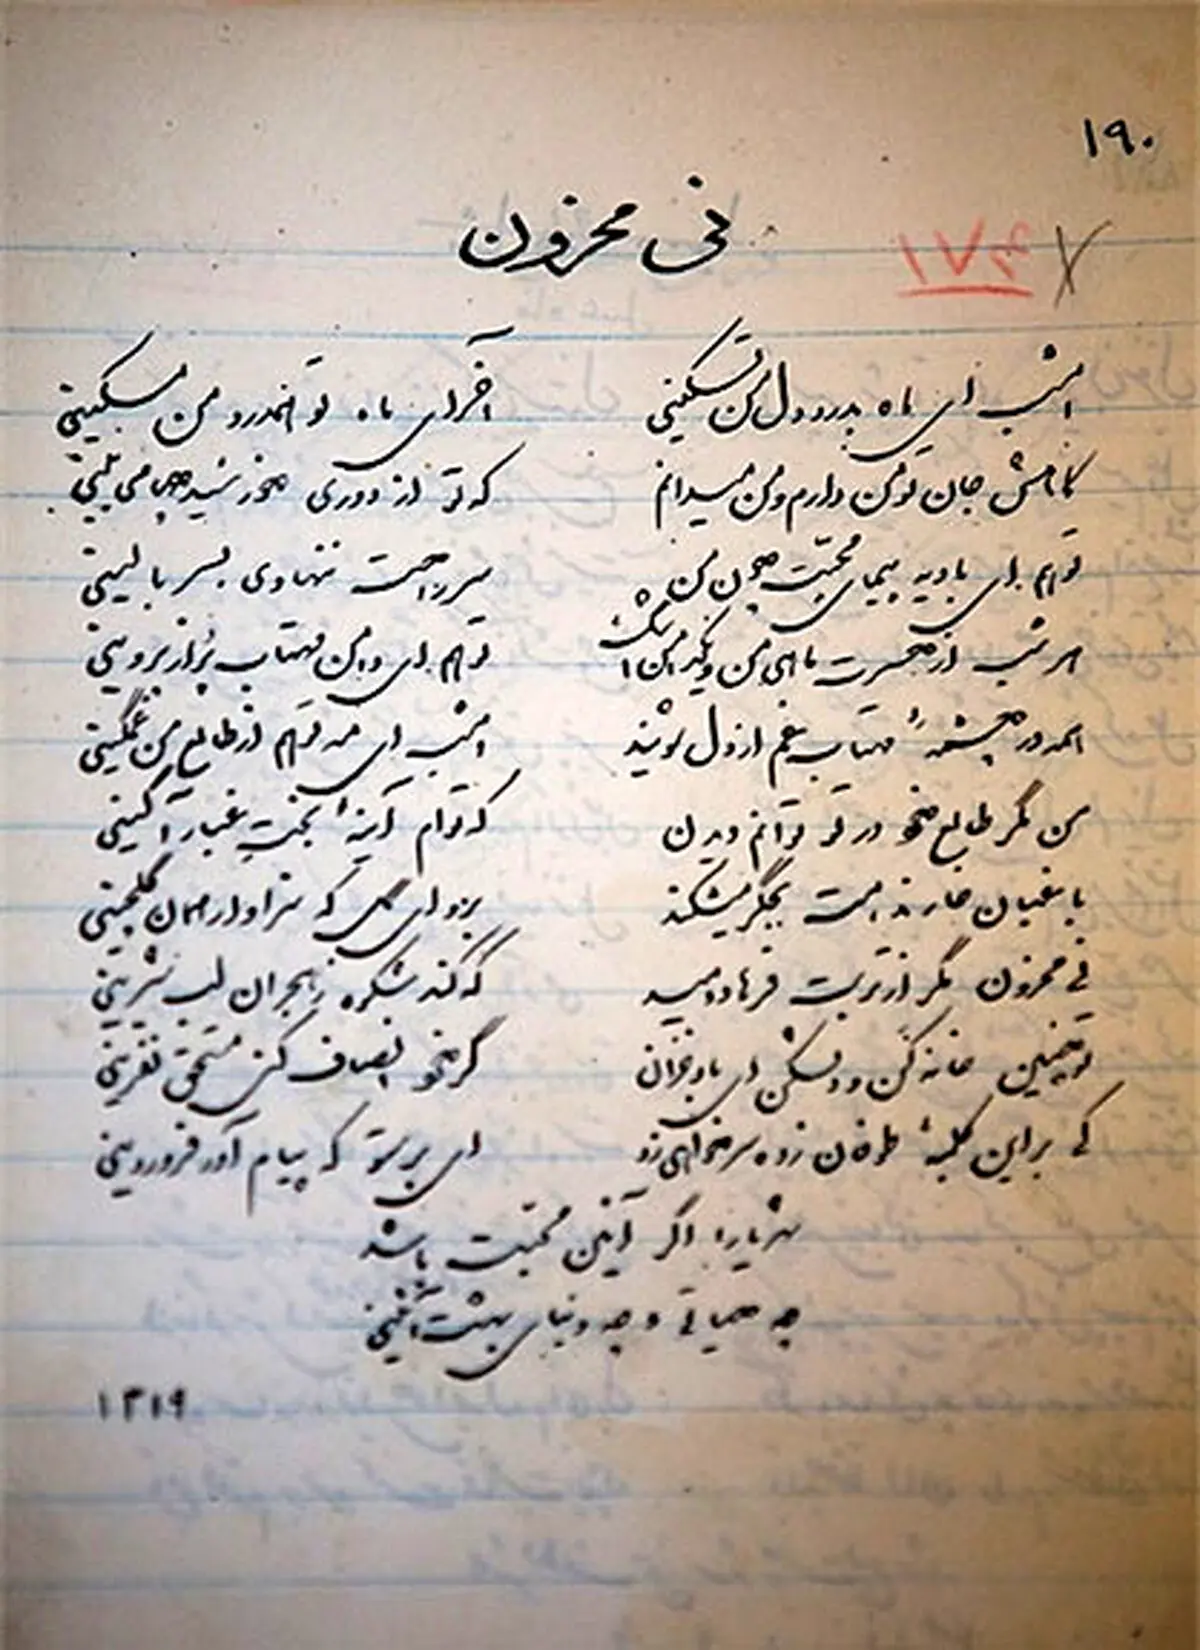 ۱۹۰
نی محزون
امشب ای ماه بدرد دل من تسکینی آخر ای ماه تو همدرد من مسکینی
کاهش جان تو من دارم و من میدانم که تو از دوری خورشید چها می بینی
تو هم ای بادیه پیمای محبّت چون من سر راحت ننهادی بسر بالینی
هر شب از حسرت ماهی من و یکدامن اشک تو هم ای دامن مهتاب پُر از پروینی
همه در چشمهٔ مهتاب غم از دل شویند امشب ای مه تو هم از طالع من غمگینی
من مگر طالع خود در تو توانم دیدن که توام آینهٔ بخت غبار آگینی
باغبان خار ندامت بجگر میشکند برو ای گل که سزاوار همان گلچینی
نی محزون مگر از تربت فرهاد دمید که کند شکوه ز هجران لب شیرینی
تو چنین خانه کن و دلشکن ای باد خزان گر خود انصاف کنی مستحق نفرینی
کی بر این کلبهٔ طوفان زده سر خواهی زد ای پرستو که پیام آور فروردینی
شهریارا اگر آیین محبّت باشد
چه حیاتی و چه دنیای بهشت آئینی
۱۳۱۹